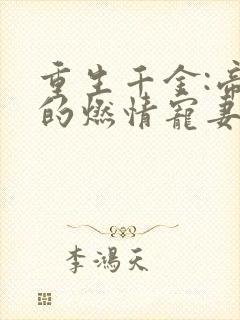 重生千金:帝
的燃情宠妻
李鸿天